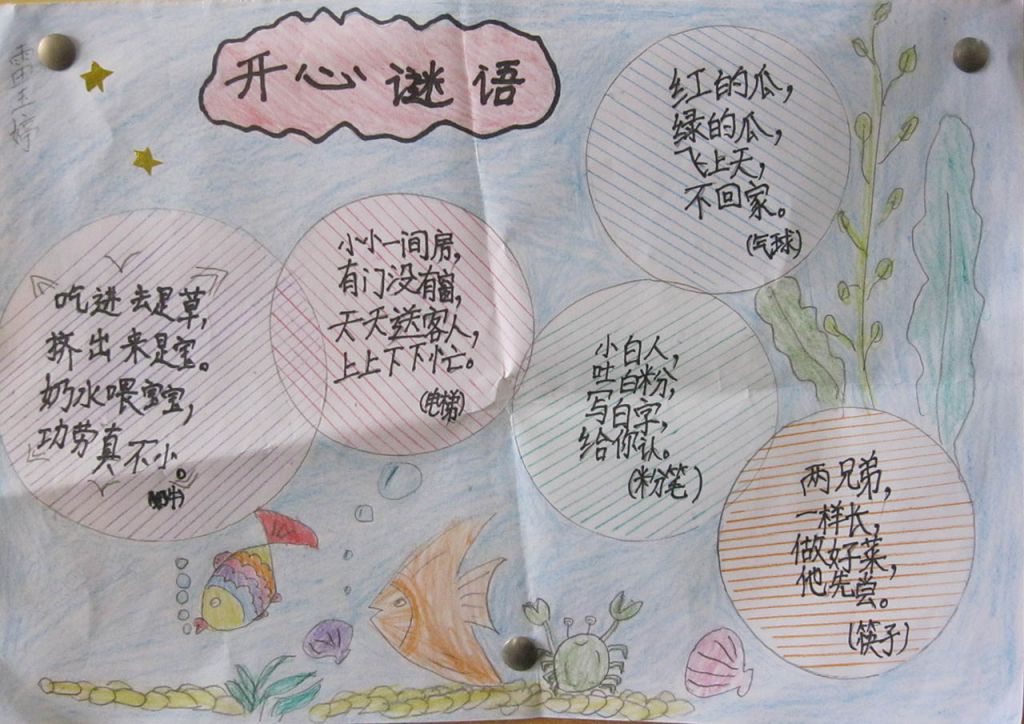 开心谜语
红的瓜，
绿的瓜，
飞上天，
不回家。
(气球)
小小一间房，
有门没有窗，
天天送客人，
上上下下忙。
(电梯)
吃进去是草，
挤出来是宝。
奶水喂宝宝，
功劳真不小。
小白人，
吐白粉，
写白字，
给你认。
(粉笔)
两兄弟，
一样长，
做好菜，
他先尝。
(筷子)